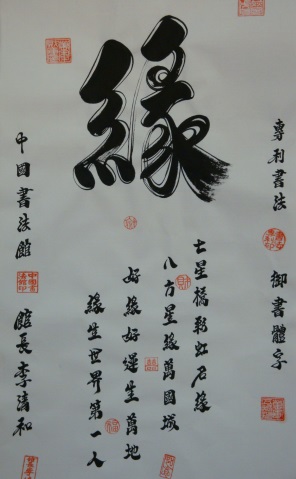 專利書法 御書體字
緣
七星橋彩虹名緣
八方星 萬國城
好緣好運生萬地
緣生世界第一人
中國書法館 館長李清和